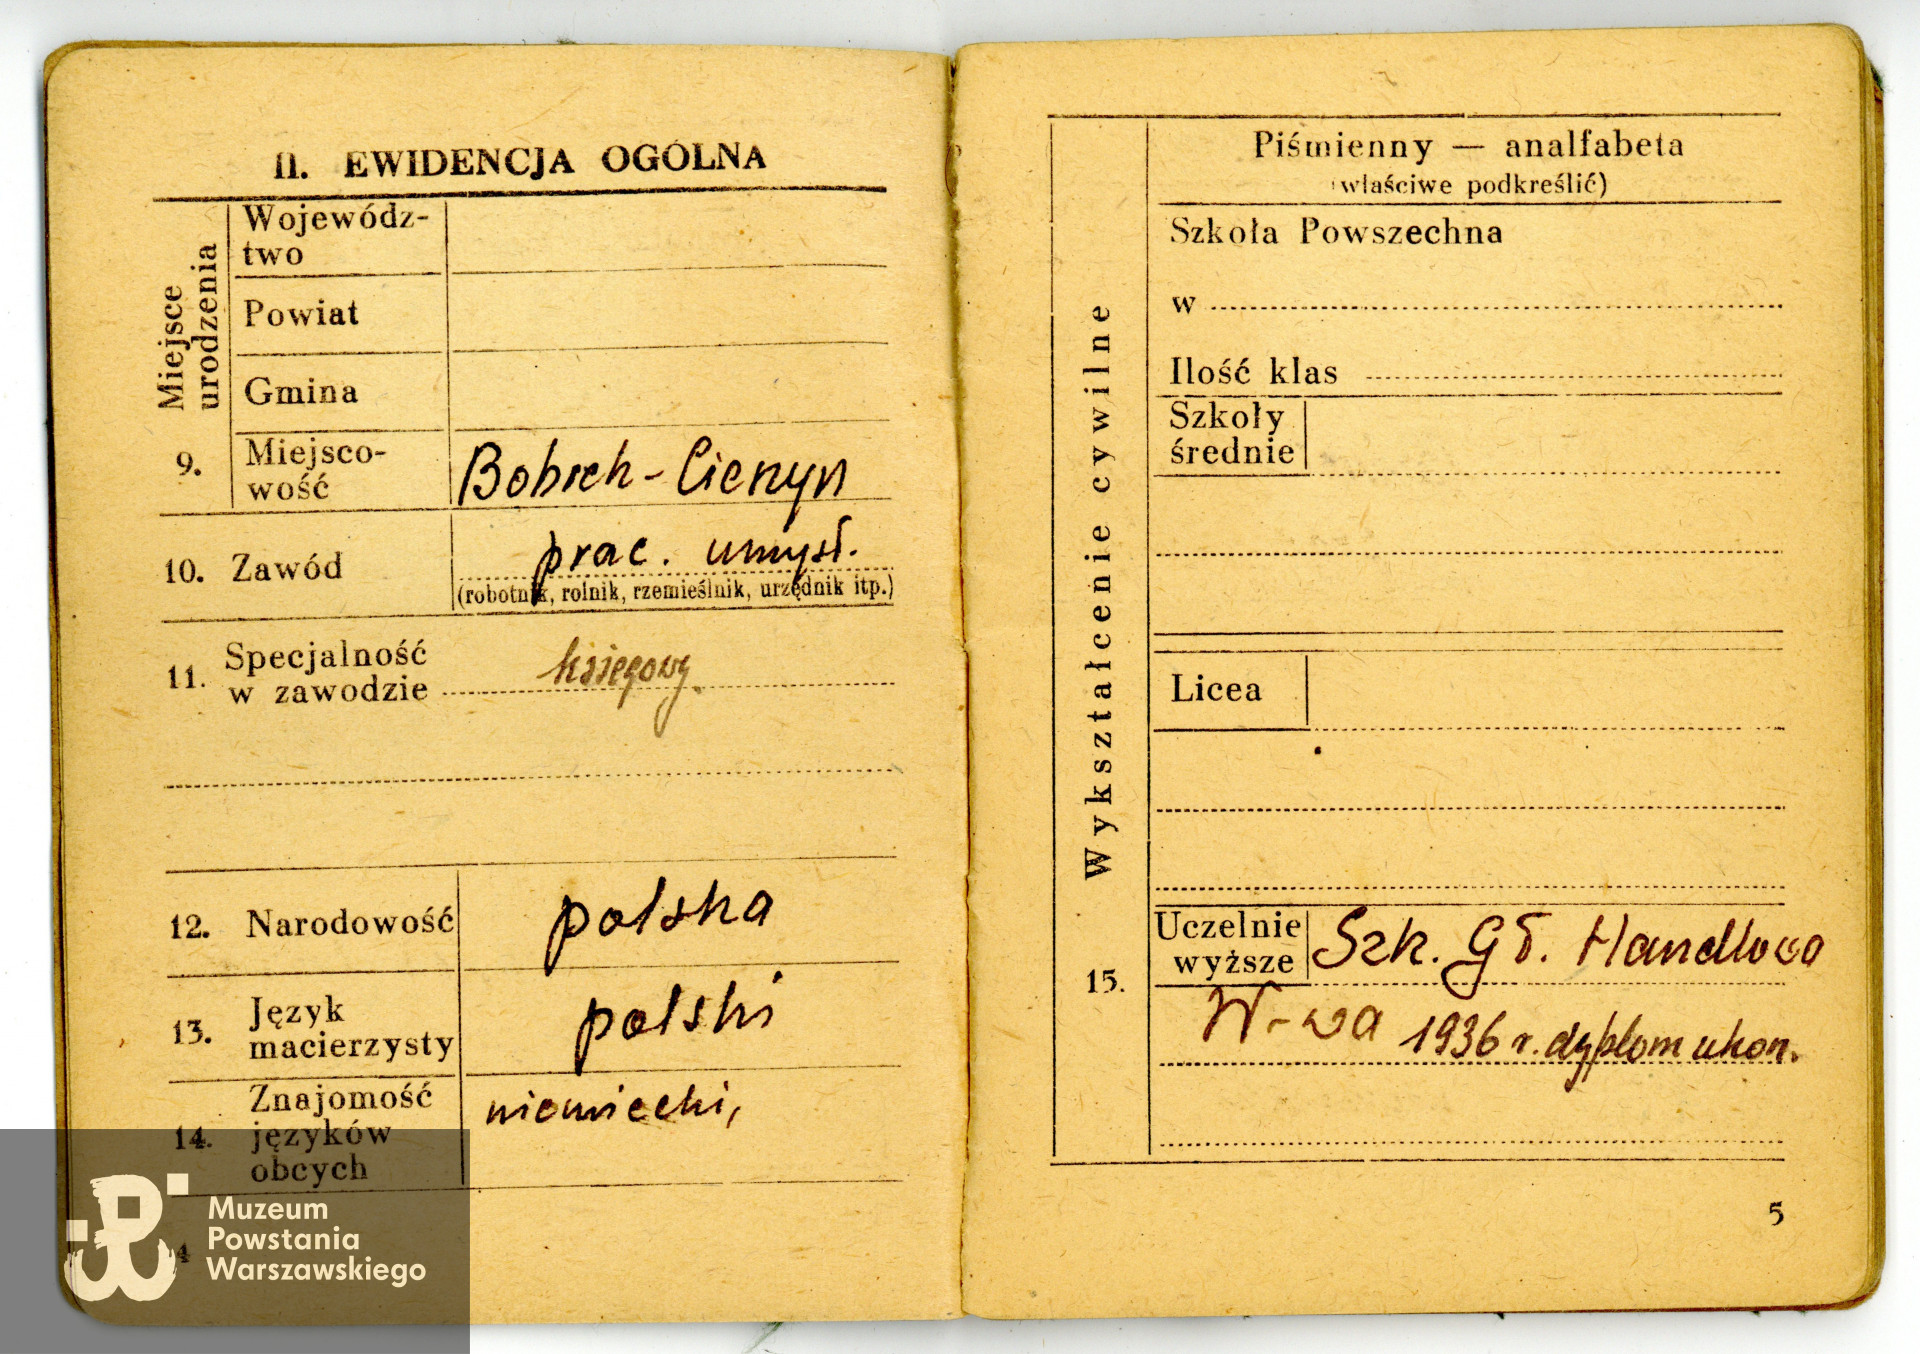 II. EWIDENCJA OGÓLNA
Miejsce
urodzenia
Wojewódz-
two
Powiat
Gmina
9. Miejsco-
wość
Bobrek - Cieszyn
10. Zawód prac. umysł.
(robotnik, rolnik, rzemieślnik, urzędnik itp.)
11. Specjalność
w zawodzie księgowy
12. Narodowość polska
13. Język
macierzysty polski
14. Znajomość
języków
obcych
niemiecki,
4
Muzeum
Powstania
Warszawskiego
15. Wykształcenie cywilne
Piśmienny — analfabeta
(właściwe podkreślić)
Szkoła Powszechna
w
Ilość klas
Szkoły
średnie
Licea
Uczelnie
wyższe
Szk. Gł. Handlowa
W-wa 1936 r. dyplom ukon.
5